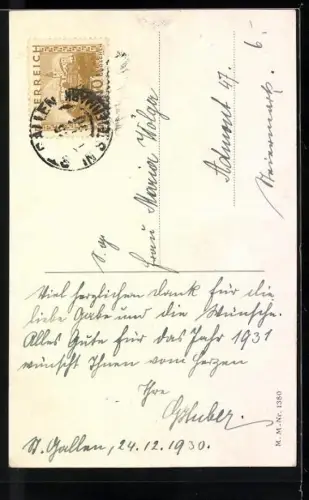 ÖSTERREICH
ST. GALLEN
Frau Maria Wilga
Admont 47.
Steiermark.
Viel herzlichen Dank für die
liebe Gabe und die Wünsche.
Alles Gute für das Jahr 1931
wünscht Ihnen vom Herzen
Ihre
St. Gallen, 24.12.1930.
M. M. Nr. 1380